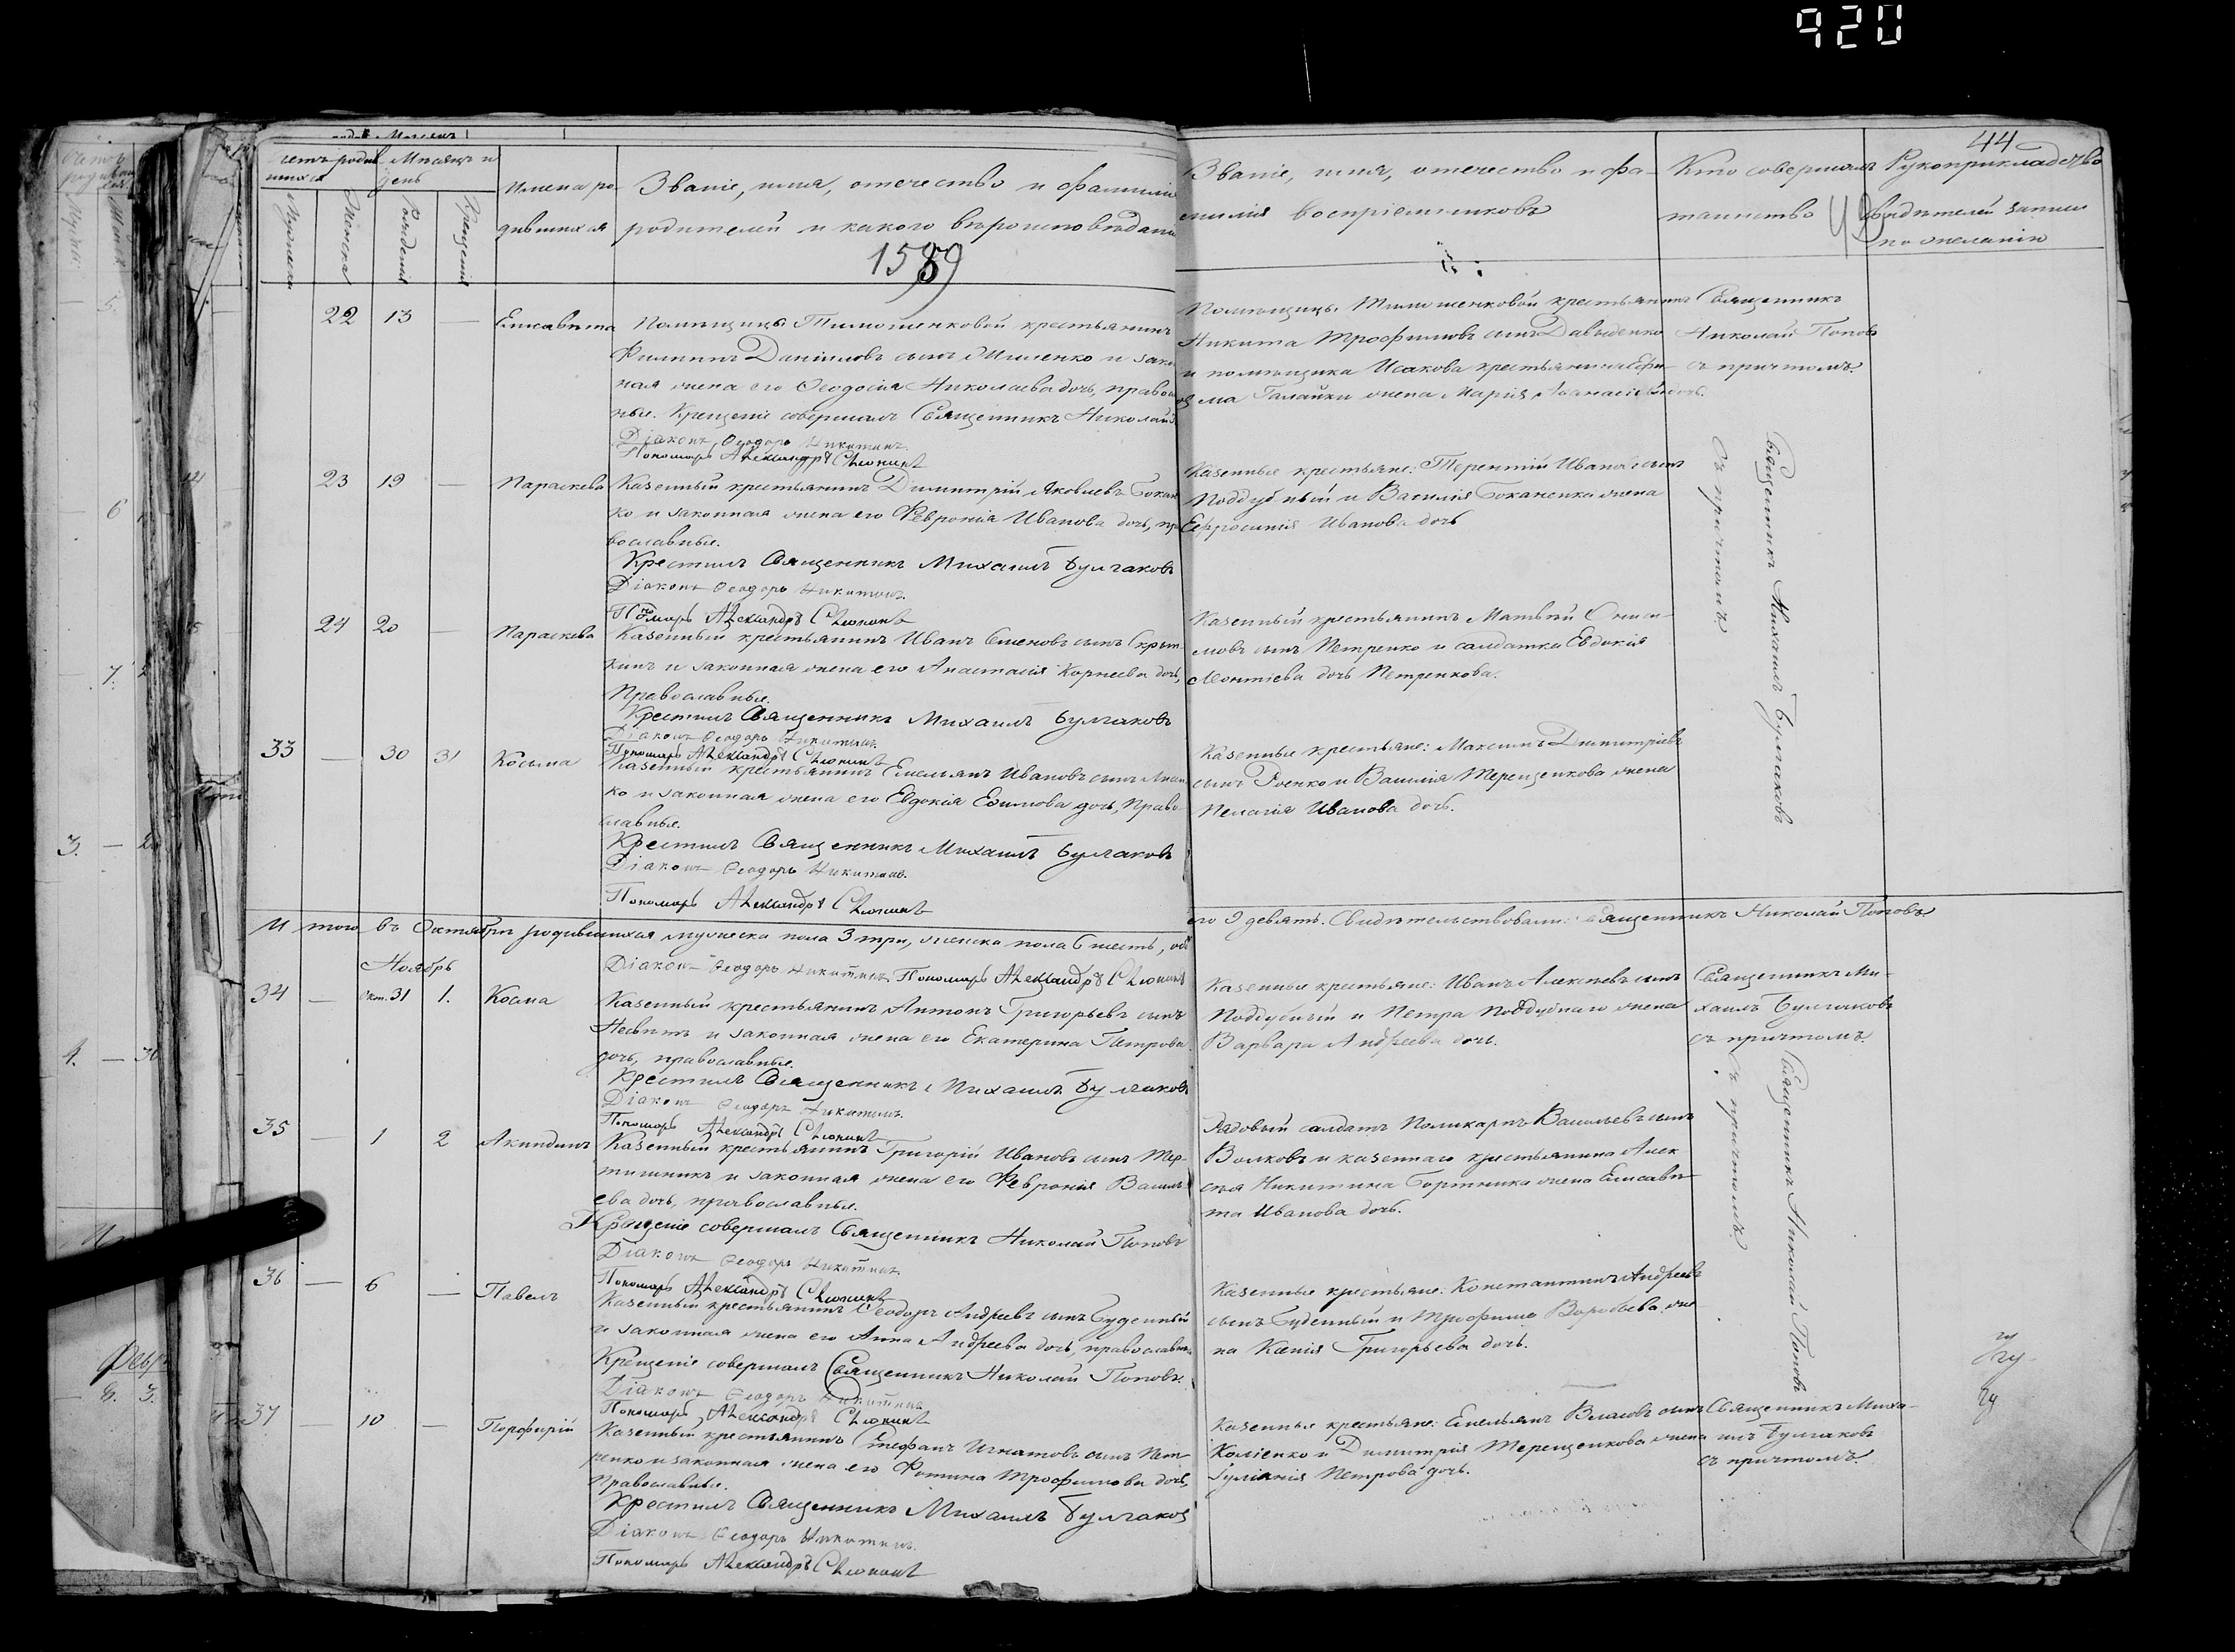 920
44
Счетъ родив
шихся
Мѣсяцъ и
день
Мужеска
Женска
Рожденія
Крещенія
Имена ро-
дившихся
Званіе, имя, отечество и фамилія
родителей и какого вѣроисповѣданія
1589
Званіе, имя, отечество и фа-
милія воспріемниковъ
Кто совершалъ
таинство
Рукоприкладство
свидѣтелей записи
по желанію
22 13 — Елисавета
Помѣщицы Тимошенковой крестьянинъ
Филиппъ Даніиловъ сынъ и закон
ная жена его Ѳеодосія Николаева дочь, правосла
ные. Крещеніе совершалъ Священникъ Николай
Діаконъ Ѳеодоръ Никитинъ
Пономарь Александръ
Помѣщицы Тимошенковой крестьянинъ
Никита Трофимовъ сынъ Давыденко
и помѣщика Исакова крестьянина Ефи-
ма Галайки жена Марія Аѳанасіева дочь.
Священникъ
Николай Поповъ
съ причтомъ.
23 19 — Параскева
Казенный крестьянинъ Димитрій Яковлевъ Бокан
ко и законная жена его Февронія Иванова дочь, пра
вославные.
Крестилъ Священникъ Михаилъ Булгаковъ
Діаконъ Ѳеодоръ Никитинъ.
Пономарь Александръ
Казенные крестьяне: Терентій Ивановъ сынъ
Поддубный и Василія Боканенка жена
Ефросинія Иванова дочь
Священникъ Михаилъ Булгаковъ
съ причтомъ.
24 20 — Параскева
Казенный крестьянинъ Иванъ Семеновъ сынъ Скрып
кинъ и законная жена его Анастасія Корнеева дочь,
Православные.
Крестилъ Священникъ Михаилъ Булгаковъ
Діаконъ Ѳеодоръ Никитинъ.
Пономарь Александръ
Казенный крестьянинъ Матвѣй Ониси-
мовъ сынъ Петренко и салдатка Евдокія
Леонтіева дочь Петренкова.
33 — 30 31 Косьма
Казенный крестьянинъ Емельянъ Ивановъ сынъ
ко и законная жена его Евдокія Ефимова дочь, Право-
славные.
Крестилъ Священникъ Михаилъ Булгаковъ
Діаконъ Ѳеодоръ Никитинъ.
Пономарь Александръ
Казенные крестьяне: Максимъ Димитріевъ
сынъ Роенко и Василія Терещенкова жена
Пелагія Иванова дочь.
Итого въ Октябрѣ родившихся мужеска пола 3 три, женска пола 6 шесть, обо
его 9 девять. Свидѣтельствовали: Священникъ Николай Поповъ
Діаконъ Ѳеодоръ Никитинъ Пономарь Александръ
Ноябрь
34 — Окт. 31 1. Косма
Казенный крестьянинъ Антонъ Григорьевъ сынъ
Несвитъ и законная жена его Екатерина Петрова
дочь, православные.
Крестилъ Священникъ Михаилъ Булгаковъ
Діаконъ Ѳеодоръ Никитинъ.
Пономарь Александръ
Казенные крестьяне: Иванъ Алексѣевъ сынъ
Поддубный и Петра Поддубнаго жена
Варвара Андреева дочь.
Священникъ Ми-
хаилъ Булгаковъ
съ причтомъ.
35 — 1 2 Акиндинъ
Казенный крестьянинъ Григорій Ивановъ сынъ Тер-
тишникъ и законная жена его Февронія Василь
ева дочь, православные.
Крещеніе совершалъ Священникъ Николай Поповъ
Діаконъ Ѳеодоръ Никитинъ.
Пономарь Александръ
Рядовый салдатъ Поликарпъ Васильевъ сынъ
Волковъ и казеннаго крестьянина Алек
сѣя Никитина Бортника жена Елисаве-
та Иванова дочь.
Священникъ Николай Поповъ
съ причтомъ
36 — 6 — Павелъ
Казенный крестьянинъ Ѳеодоръ Андреевъ сынъ Буденный
и законная жена его Анна Андреева дочь, православные
Крещеніе совершалъ Священникъ Николай Поповъ.
Діаконъ Ѳеодоръ Никитинъ
Пономарь Александръ
Казенные крестьяне: Константинъ Андреевъ
сынъ Буденный и Трофима Воробьева же
на Ксенія Григорьева дочь.
37 — 10 — Порфирій
Казенный крестьянинъ Стефанъ Игнатовъ сынъ Пет-
ренко и законная жена его Фотина Трофимова дочь,
Православные.
Крестилъ Священникъ Михаилъ Булгаковъ
Діаконъ Ѳеодоръ Никитинъ.
Пономарь Александръ
Казенные крестьяне: Емельянъ Власовъ сынъ
Коліенко и Димитрія Терещенкова жена
Іуліанія Петрова дочь.
Священникъ Миха-
илъ Булгаковъ
съ причтомъ.